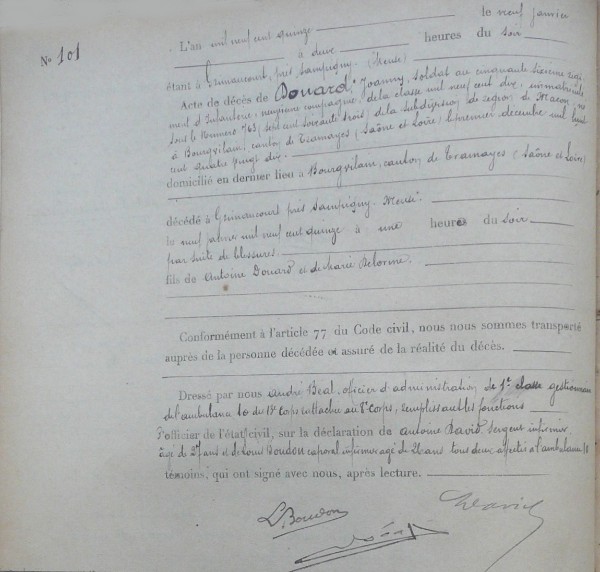 N° 101
L'an mil neuf cent quinze le neuf janvier
à deux heures du soir
étant à Grimaucourt, près Sampigny. (Meuse)
Acte de décès de Douard, Joanny, soldat au cinquante sixième régi
ment d'Infanterie, neuvième compagnie, de la classe mil neuf cent dix, immatriculé
sous le Numéro 763 (sept cent soixante trois) de la subdivision de région de Macon, né
à Bourgvilain, canton de Tramayes (Saône et Loire) le premier décembre mil huit
cent quatre vingt dix.
domicilié en dernier lieu à Bourgvilain, canton de Tramayes (Saône et Loire)
décédé à Grimaucourt près Sampigny. Meuse.
le neuf janvier mil neuf cent quinze à une heure du soir
par suite de blessures.
fils de Antoine Douard et de Marie Delorme.
Conformément à l'article 77 du Code civil, nous nous sommes transporté
auprès de la personne décédée et assuré de la réalité du décès.
Dressé par nous André Béal, officier d'administration de 1e classe gestionnaire
de l'ambulance 10 du 13e Corps rattachée au 8e Corps, remplissant les fonctions
d'officier de l'état civil, sur la déclaration de Antoine David, sergent infirmier
âgé de 27 ans et de Louis Boudon caporal infirmier âgé de 26 ans tous deux affectés à l'ambulance
témoins, qui ont signé avec nous, après lecture.
L. Boudon
David
Béal